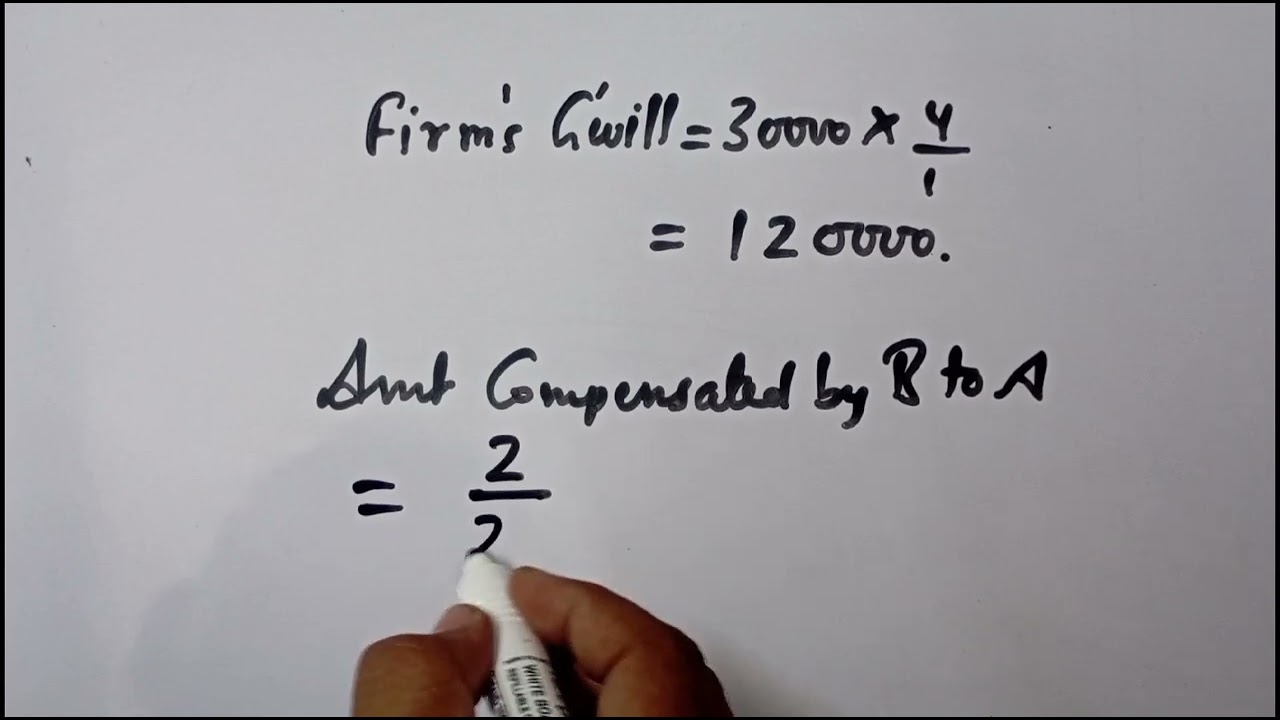 Firm's G'will = 30000 × 4/1
= 120000.
Amt Compensated by B to A
= 2/2
WHITE BO